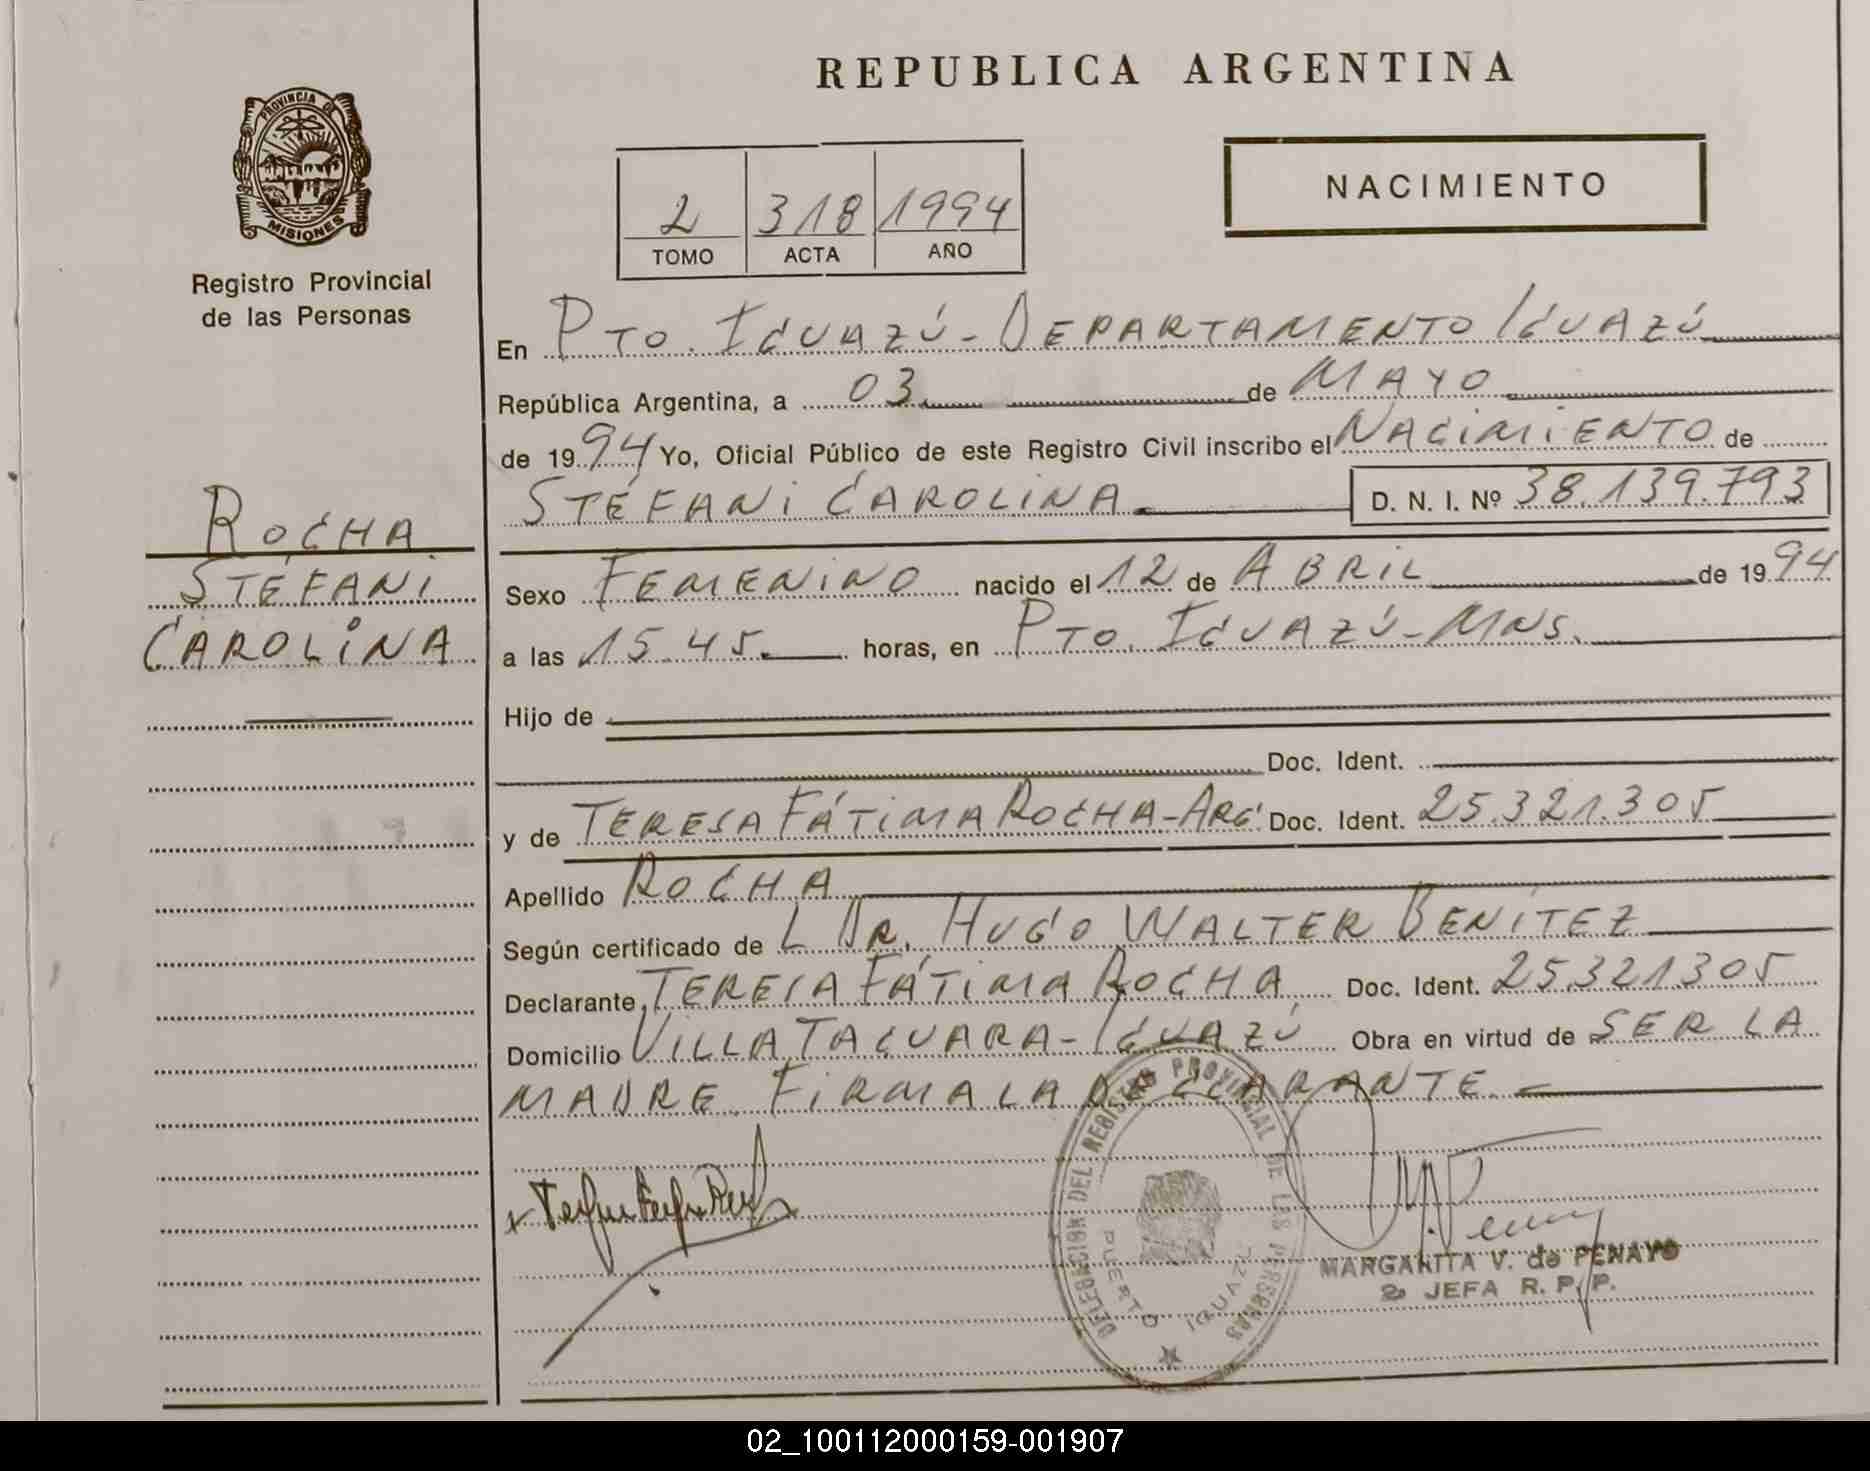 REPUBLICA ARGENTINA
PROVINCIA DE
MISIONES
Registro Provincial
de las Personas
2 318 1994
TOMO ACTA AÑO
NACIMIENTO
ROCHA
STÉFANI
CAROLINA
En PTO. IGUAZÚ - DEPARTAMENTO IGUAZÚ
República Argentina, a 03 de MAYO
de 1994 Yo, Oficial Público de este Registro Civil inscribo el NACIMIENTO de
STÉFANI CAROLINA D. N. I. Nº 38.139.793
Sexo FEMENINO nacido el 12 de ABRIL de 1994
a las 15.45. horas, en PTO. IGUAZÚ - MNS.
Hijo de
Doc. Ident.
y de TERESA FÁTIMA ROCHA - ARG. Doc. Ident. 25.321.305
Apellido ROCHA
Según certificado de L DR. HUGO WALTER BENÍTEZ
Declarante TERESA FÁTIMA ROCHA Doc. Ident. 25.321.305
Domicilio VILLA TACUARA - IGUAZÚ Obra en virtud de SER LA
MADRE. FIRMA LA DECLARANTE.
DELEGACION DEL REGISTRO PROVINCIAL DE LAS PERSONAS
PUERTO IGUAZU
MARGARITA V. de PENAYO
JEFA R. P. P.
02_100112000159-001907